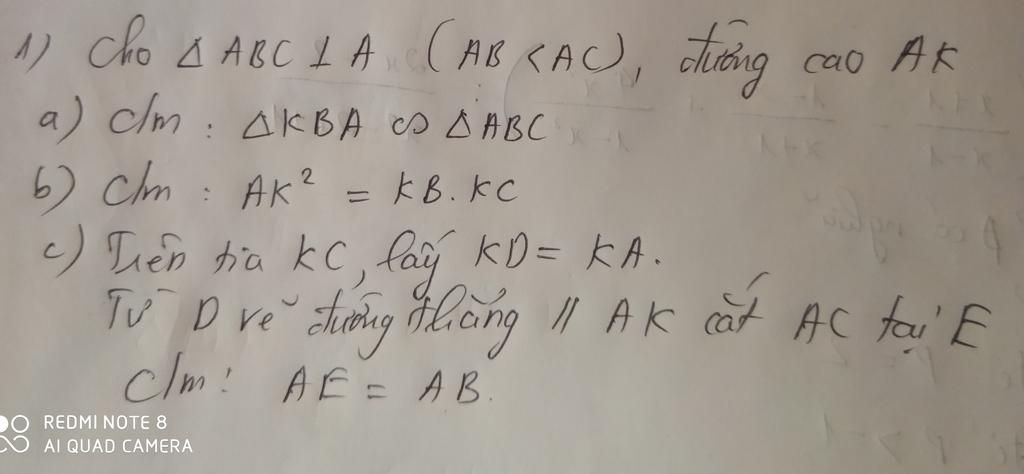 1) Cho Δ ABC ⊥ A (AB < AC), đường cao AK
a) C/m : ΔKBA ∽ ΔABC
b) C/m : AK² = KB.KC
c) Trên tia KC, lấy KD = KA.
Từ D vẽ đường thẳng // AK cắt AC tại E
C/m : AE = AB.
REDMI NOTE 8
AI QUAD CAMERA